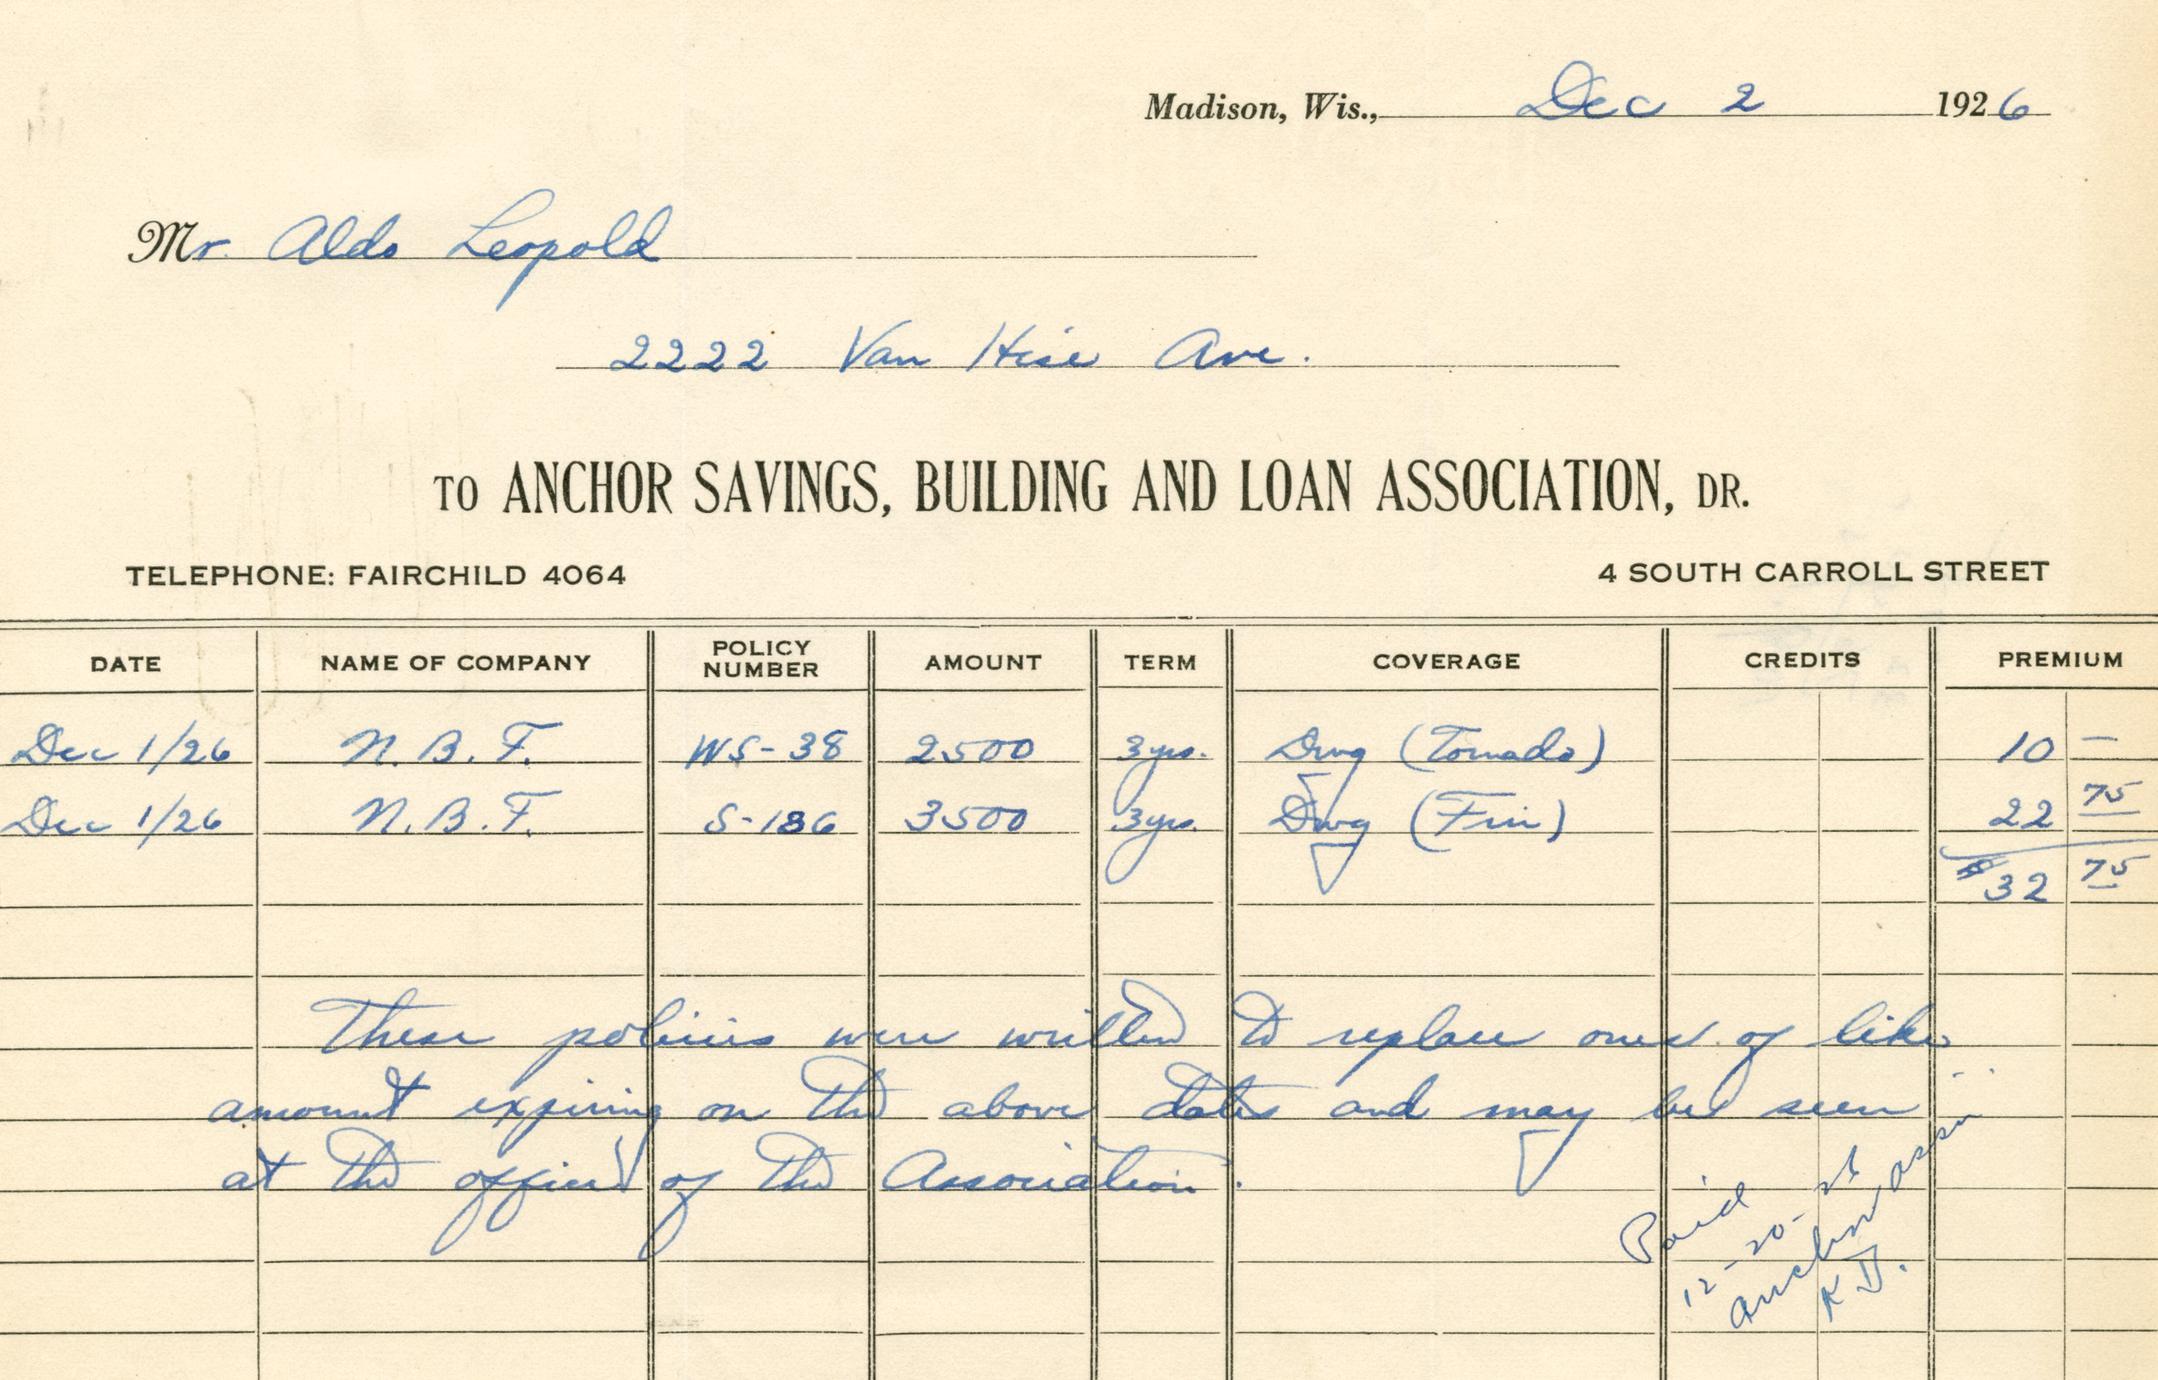 Madison, Wis., Dec 2 1926
Mr. Aldo Leopold
2222 Van Hise Ave.
TO ANCHOR SAVINGS, BUILDING AND LOAN ASSOCIATION, DR.
TELEPHONE: FAIRCHILD 4064 4 SOUTH CARROLL STREET
DATE NAME OF COMPANY POLICY NUMBER AMOUNT TERM COVERAGE CREDITS PREMIUM
Dec 1/26 N.B.F. WS-38 2500 3 yrs. Dwg (Tornado) 10 —
Dec 1/26 N.B.F. S-186 3500 3 yrs. Dwg (Fire) 22 75
$32 75
These policies were written to replace ones of like
amount expiring on the above dates and may be seen
at the office of the Association.
Paid
12-20-26
Anchor Assn.
K D.